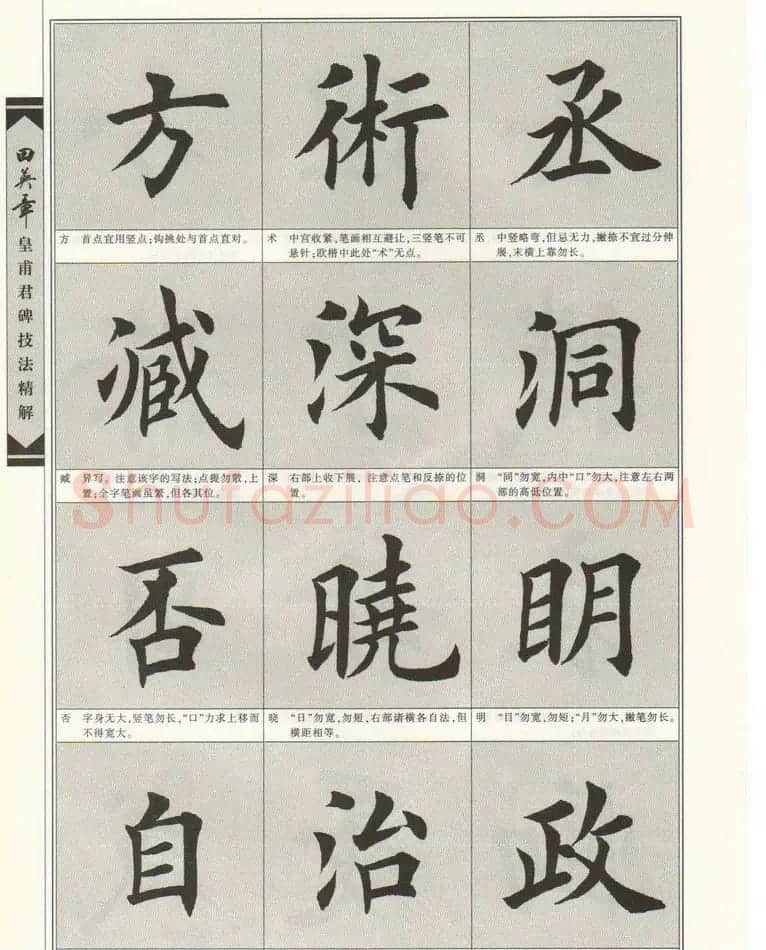 田英章
皇甫君碑技法精解
方 術 丞
方 首点宜用竖点；钩挑处与首点直对。
术 中宫收紧，笔画相互避让，三竖笔不可
悬针；欧楷中此处“术”无点。
丞 中竖略弯，但忌无力，撇捺不宜过分伸
展，末横上靠勿长。
臧 深 洞
臧 异写。注意该字的写法；点提勿散，上
置；全字笔画虽繁，但各其位。
深 右部上收下展，注意点笔和反捺的位
置。
洞 “同”勿宽，内中“口”勿大，注意左右两
部的高低位置。
否 曉 明
否 字身无大，竖笔勿长，“口”力求上移而
不得宽大。
晓 “日”勿宽，勿短，右部诸横各自法，但
横距相等。
明 “目”勿宽，勿短；“月”勿大，撇笔勿长。
自 治 政
Shufaziliao.COM